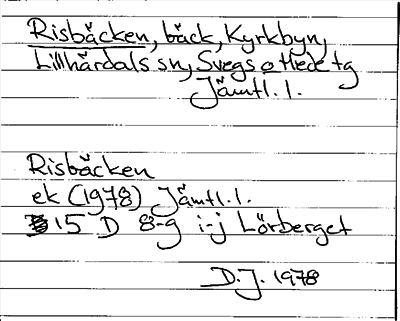 Risbäcken, bäck, Kyrkbyn,
Lillhärdals sn, Svegs o Hede tg
Jämtl. l.
Risbäcken
ek (1978) Jämtl. l.
15 D 8-9 i-j Lörberget
D.J. 1978